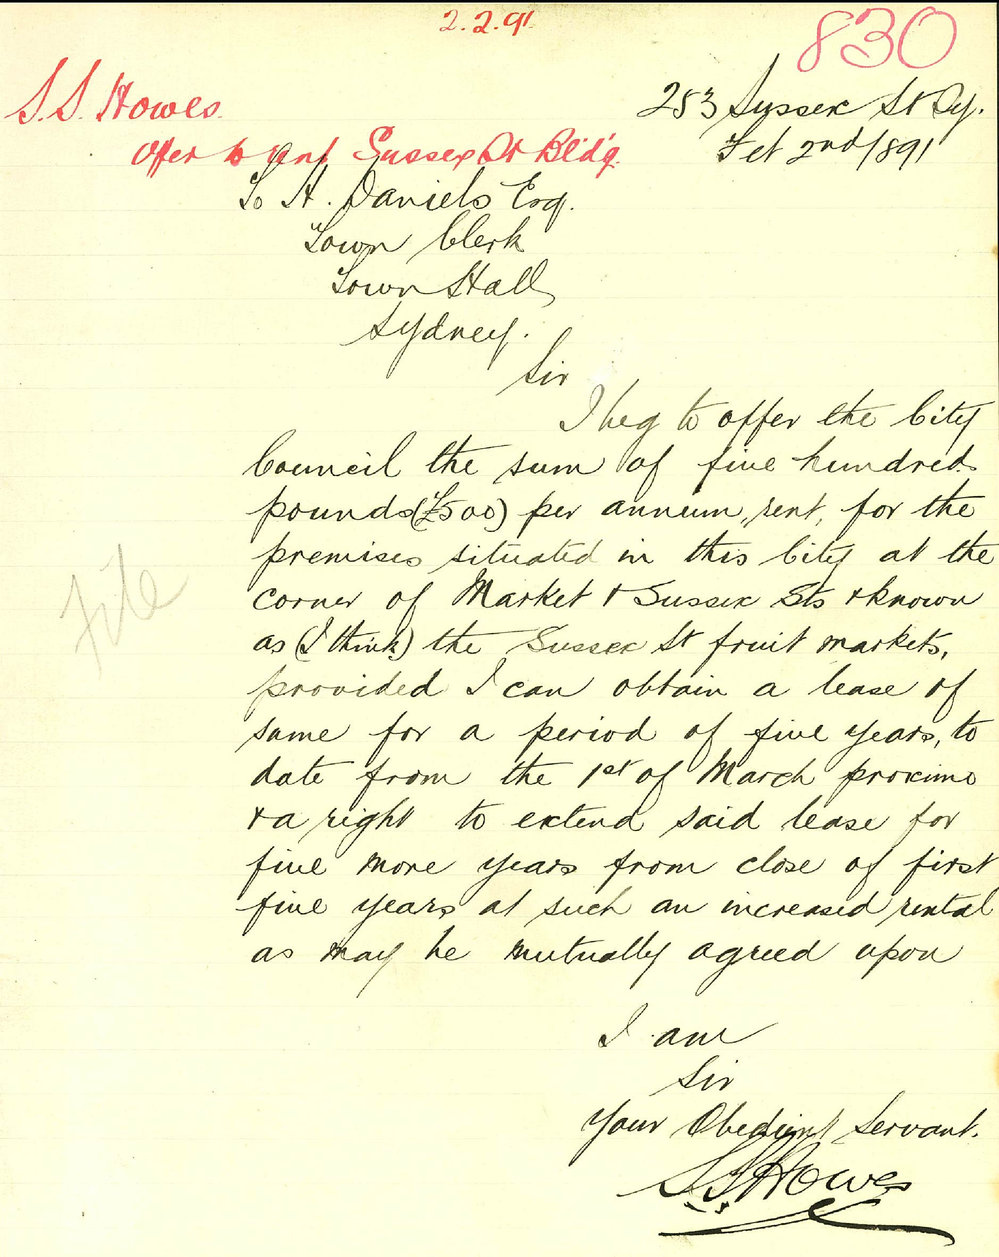 2.2.91
830
S.S. Howes.
Offer to rent Sussex St Bldg.
253 Sussex St Sy.
Feb 2nd/1891
To H. Daniels Esq.
Town Clerk
Town Hall
Sydney.
Sir
I beg to offer the City
Council the sum of five hundred
pounds (£500) per annum, rent, for the
premises situated in this City at the
corner of Market & Sussex Sts & known
as (I think) the Sussex St fruit markets,
provided I can obtain a lease of
same for a period of five years, to
date from the 1st of March proximo
& a right to extend said lease for
five more years from close of first
five years at such an increased rental
as may be mutually agreed upon
File
I am
Sir
Your Obedient Servant.
S S Howes